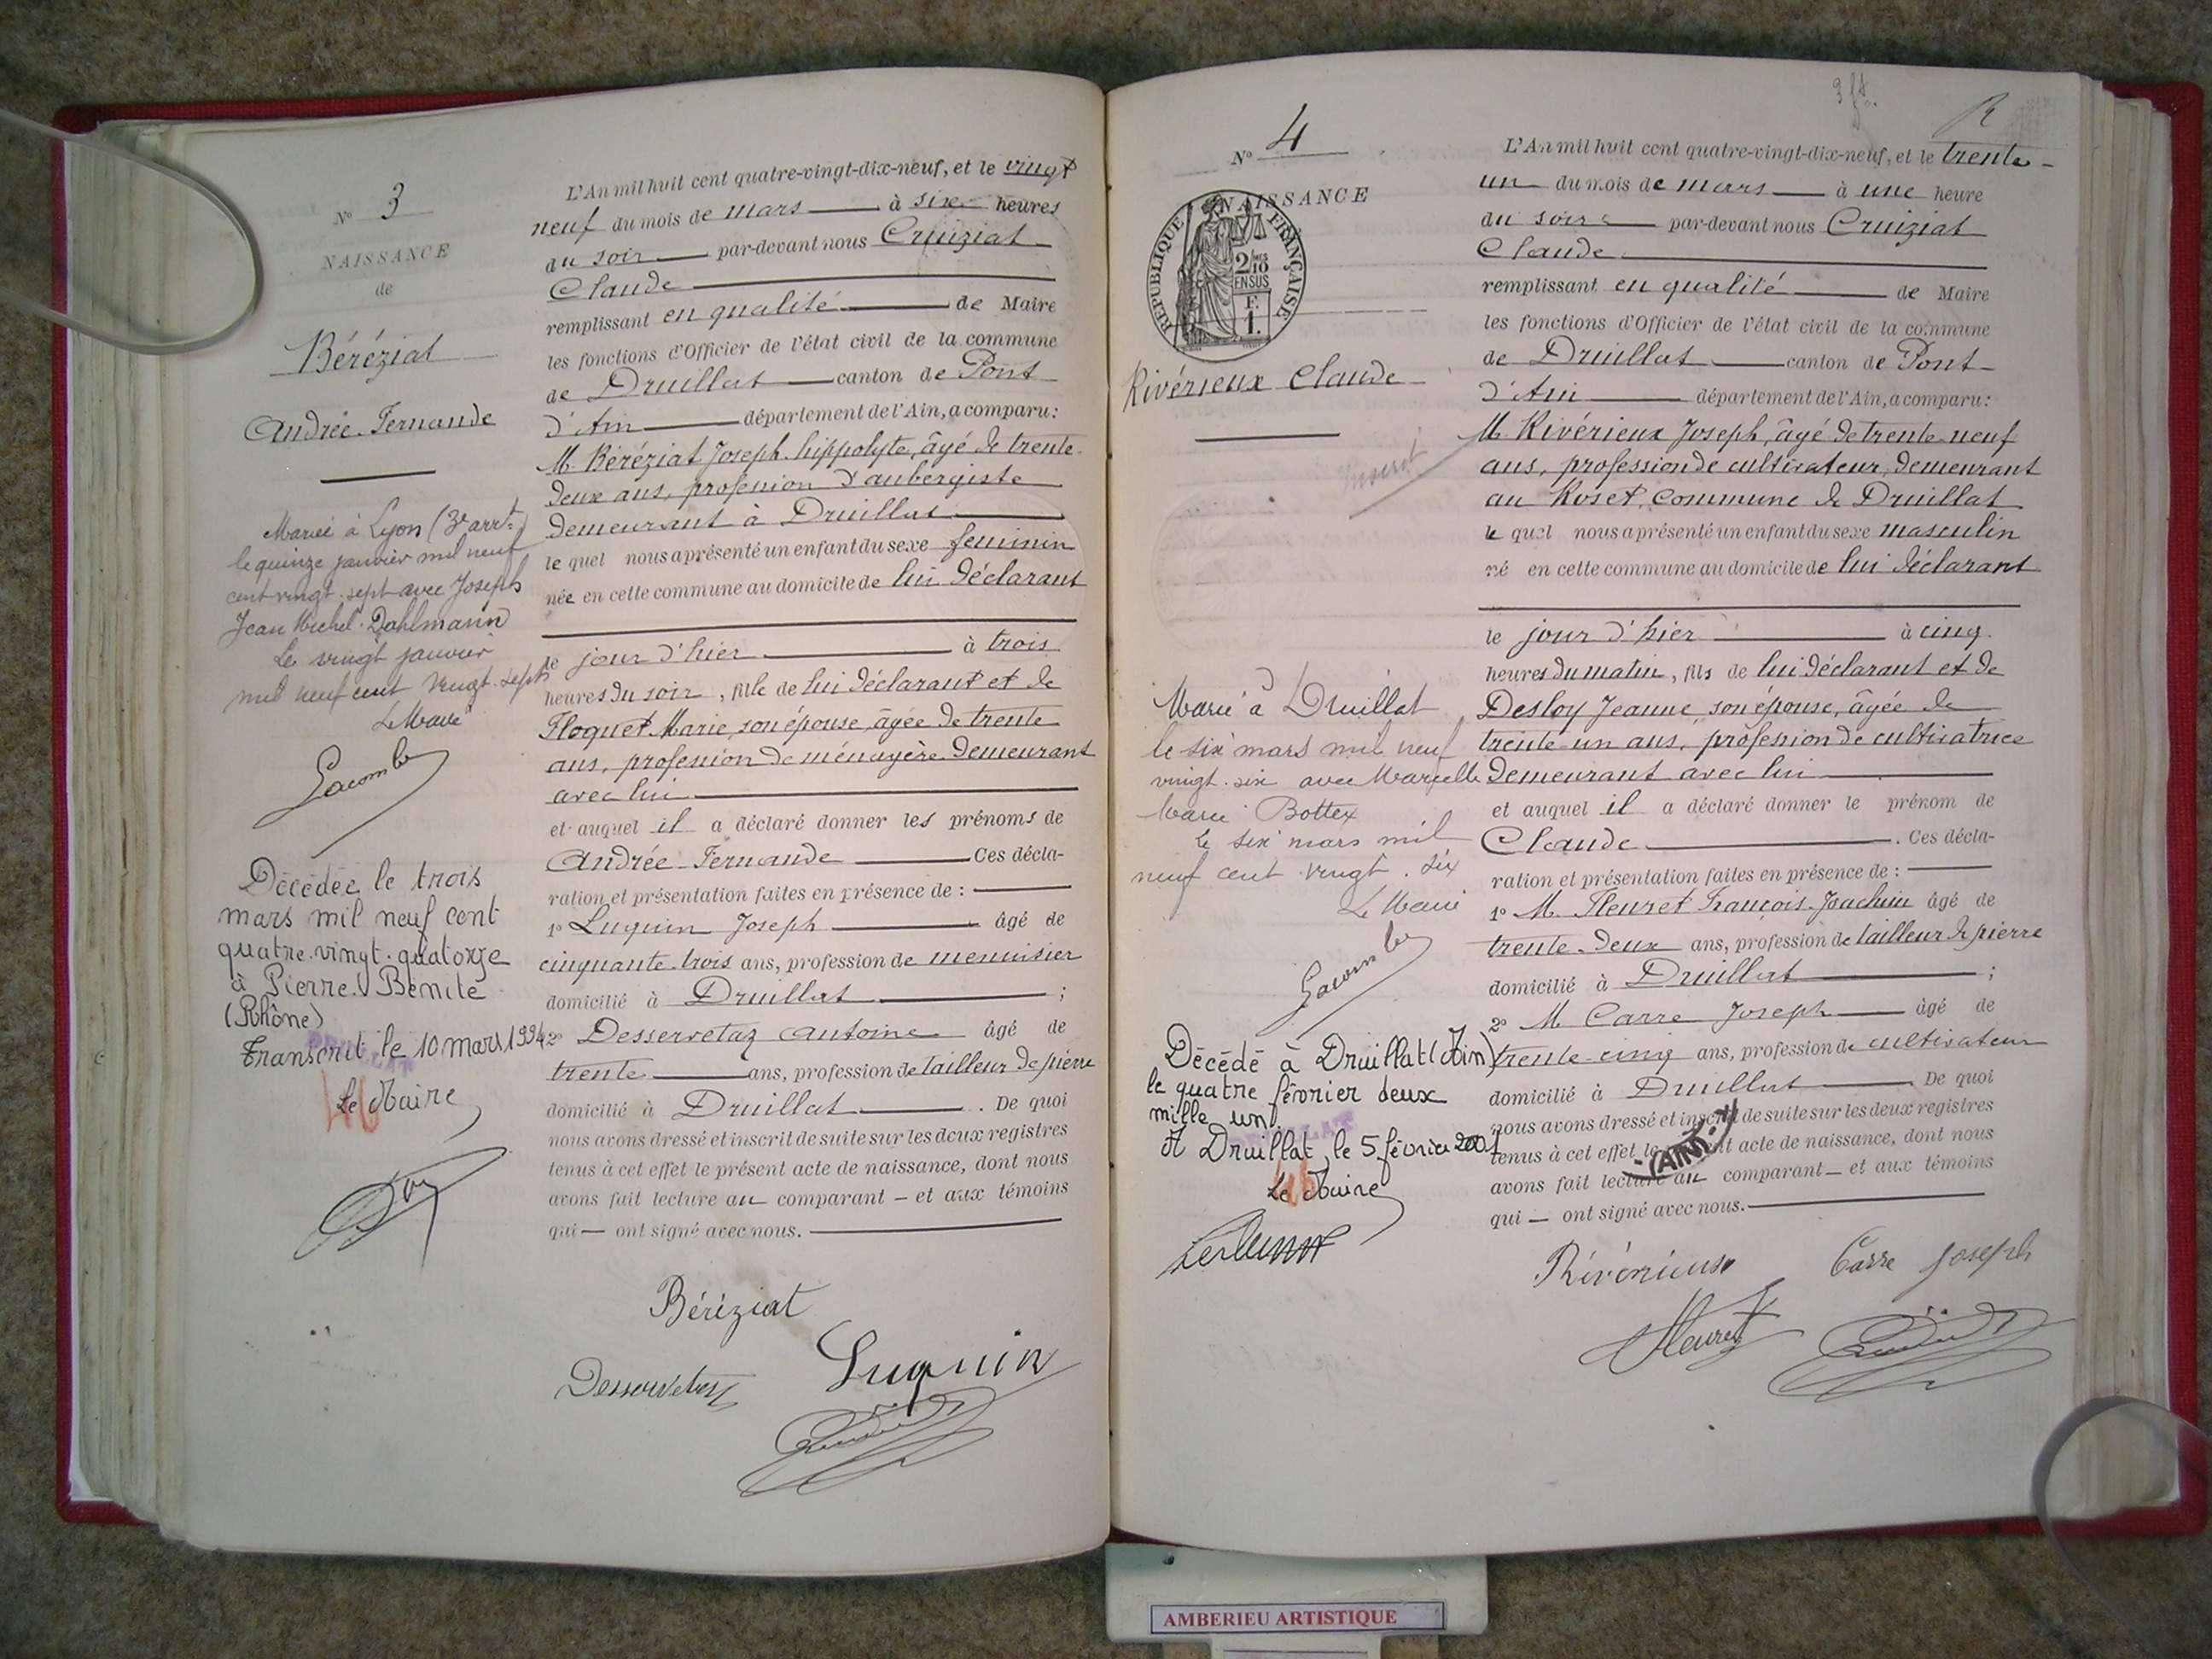 N° 3
NAISSANCE
de
Béréziat
Andrée Fernande
Mariée à Lyon (3e arrt)
le quinze janvier mil neuf
cent vingt-sept avec Joseph
Jean Michel Dahlmann
Le vingt janvier
mil neuf cent vingt-sept
Le Maire
Lacombe
Décédée le trois
mars mil neuf cent
quatre-vingt-quatorze
à Pierre-Bénite
(Rhône)
Transcrit le 10 mars 1994
Le Maire
L'An mil huit cent quatre-vingt-dix-neuf, et le vingt
neuf du mois de mars à six heures
du soir par-devant nous Cruiziat
Claude
remplissant en qualité de Maire
les fonctions d'Officier de l'état civil de la commune
de Druillat canton de Pont
d'Ain département de l'Ain, a comparu :
M. Béréziat Joseph hippolyte, âgé de trente
deux ans, profession d'aubergiste
demeurant à Druillat
le quel nous a présenté un enfant du sexe féminin
née en cette commune au domicile de lui déclarant
le jour d'hier à trois
heures du soir, fille de lui déclarant et de
Floquet Marie, son épouse, âgée de trente
ans, profession de ménagère demeurant
avec lui
et auquel il a déclaré donner les prénoms de
Andrée Fernande Ces décla-
ration et présentation faites en présence de :
1° Luquin Joseph âgé de
cinquante-trois ans, profession de menuisier
domicilié à Druillat ;
2° Desservetaz Antoine âgé de
trente ans, profession de tailleur de pierre
domicilié à Druillat. De quoi
nous avons dressé et inscrit de suite sur les deux registres
tenus à cet effet le présent acte de naissance, dont nous
avons fait lecture au comparant — et aux témoins
qui — ont signé avec nous.
Béréziat
Desservetaz Luquin
N° 4
NAISSANCE
REPUBLIQUE FRANÇAISE
2/10 EN SUS
F. 1.
Rivérieux Claude
inscrit
Marié à Druillat
le six mars mil neuf
vingt-six avec Marcelle
Marie Bottex
Le six mars mil
neuf cent vingt-six
Le Maire
Lacombe
Décédé à Druillat (Ain)
le quatre février deux
mille un.
A Druillat, le 5 février 2001
Le Maire
L'An mil huit cent quatre-vingt-dix-neuf, et le trente-
un du mois de mars à une heure
du soir par-devant nous Cruiziat
Claude
remplissant en qualité de Maire
les fonctions d'Officier de l'état civil de la commune
de Druillat canton de Pont-
d'Ain département de l'Ain, a comparu :
M. Rivérieux Joseph, âgé de trente-neuf
ans, profession de cultivateur, demeurant
au Roset, commune de Druillat
le quel nous a présenté un enfant du sexe masculin
né en cette commune au domicile de lui déclarant
le jour d'hier à cinq
heures du matin, fils de lui déclarant et de
Desloy Jeanne, son épouse, âgée de
trente-un ans, profession de cultivatrice
demeurant avec lui
et auquel il a déclaré donner le prénom de
Claude. Ces décla-
ration et présentation faites en présence de :
1° M. Fleuret François-Joachim âgé de
trente-deux ans, profession de tailleur de pierre
domicilié à Druillat ;
2° M Carre Joseph âgé de
trente-cinq ans, profession de cultivateur
domicilié à Druillat De quoi
nous avons dressé et inscrit de suite sur les deux registres
tenus à cet effet le présent acte de naissance, dont nous
avons fait lecture au comparant — et aux témoins
qui — ont signé avec nous.
(AIN)
Rivérieux Carre Joseph
Fleuret
AMBERIEU ARTISTIQUE